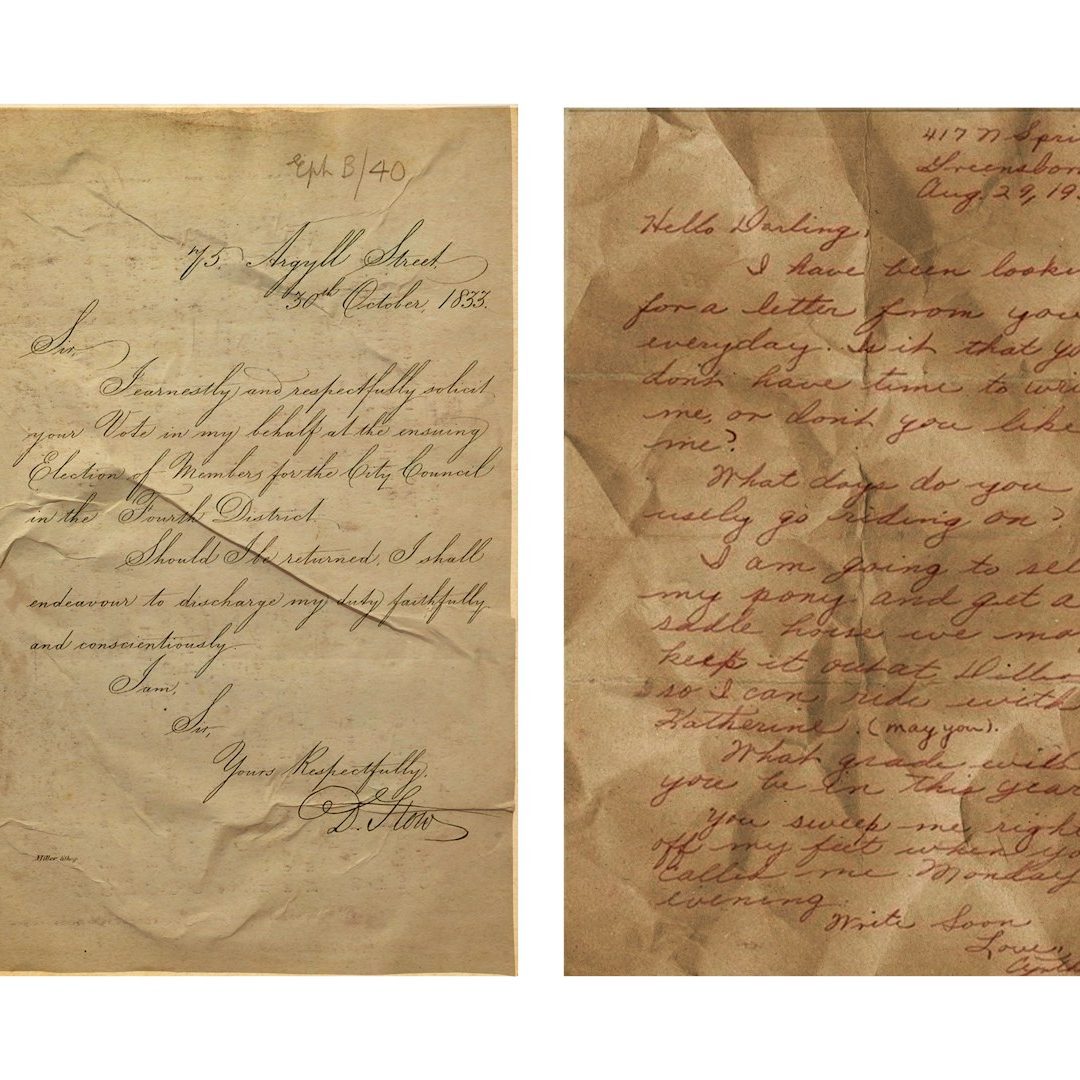 Eph B/40
75. Argyll Street,
30th October, 1833.
Sir,
I earnestly and respectfully solicit
your Vote in my behalf at the ensuing
Election of Members for the City Council
in the Fourth District.
Should I be returned, I shall
endeavour to discharge my duty faithfully
and conscientiously.
I am,
Sir,
Yours Respectfully,
D. Stow
Miller Lithog.
417 N Spri
Greensbor
Aug. 29, 19
Hello Darling,
I have been looki
for a letter from you
everyday. Is it that yo
don't have time to wri
me, or don't you like
me?
What days do you
usely go riding on?
I am going to sel
my pony and get a
sadle horse we ma
keep it out at
so I can ride with
Katherine. (may you).
What grade will
you be in this year
You sweep me righ
off my feet when yo
called me Monday
evening.
Write Soon
Love,
Cynth